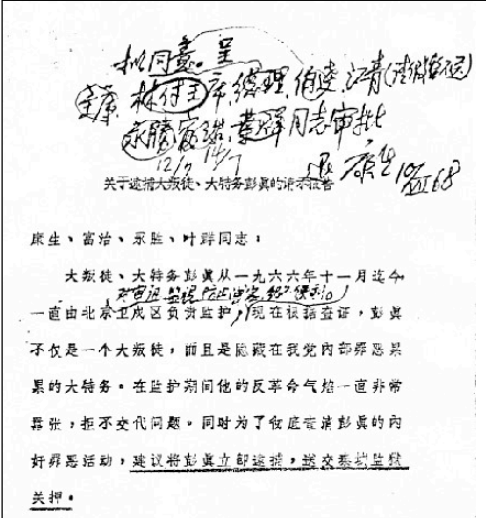 拟同意。呈
林付主席、总理、伯达、江青
永胜、富治、叶群同志审批
12/7 14/7
关于逮捕大叛徒、大特务彭真的请示报告
康生、富治、永胜、叶群同志：
大叛徒、大特务彭真从一九六六年十一月迄今
一直由北京卫戍区负责监护，现在根据查证，彭真
不仅是一个大叛徒，而且是隐藏在我党内部罪恶累
累的大特务。在监护期间他的反革命气焰一直非常
嚣张，拒不交代问题。同时为了彻底肃清彭真的内
奸罪恶活动，建议将彭真立即逮捕，送交秦城监狱
关押。